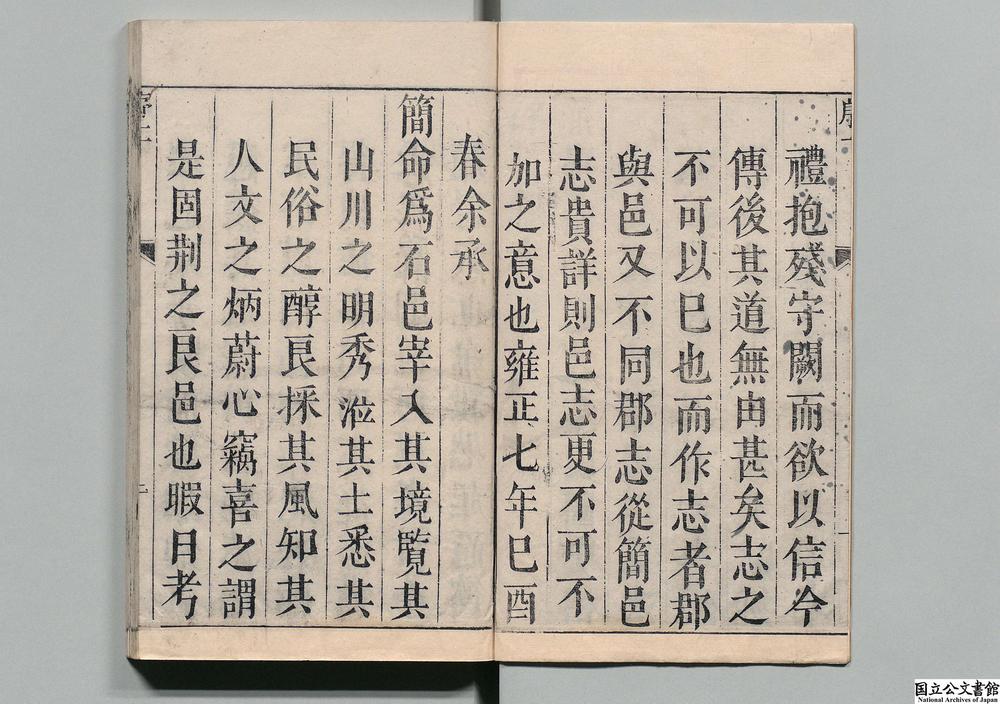 禮抱殘守闕而欲以信今
傳後其道無由甚矣志之
不可以巳也而作志者郡
與邑又不同郡志從簡邑
志貴詳則邑志更不可不
加之意也雍正七年巳酉
春余承
簡命爲石邑宰入其境覽其
山川之明秀涖其土悉其
民俗之醇良採其風知其
人文之炳蔚心竊喜之謂
是固荆之良邑也暇日考
国立公文書館
National Archives of Japan